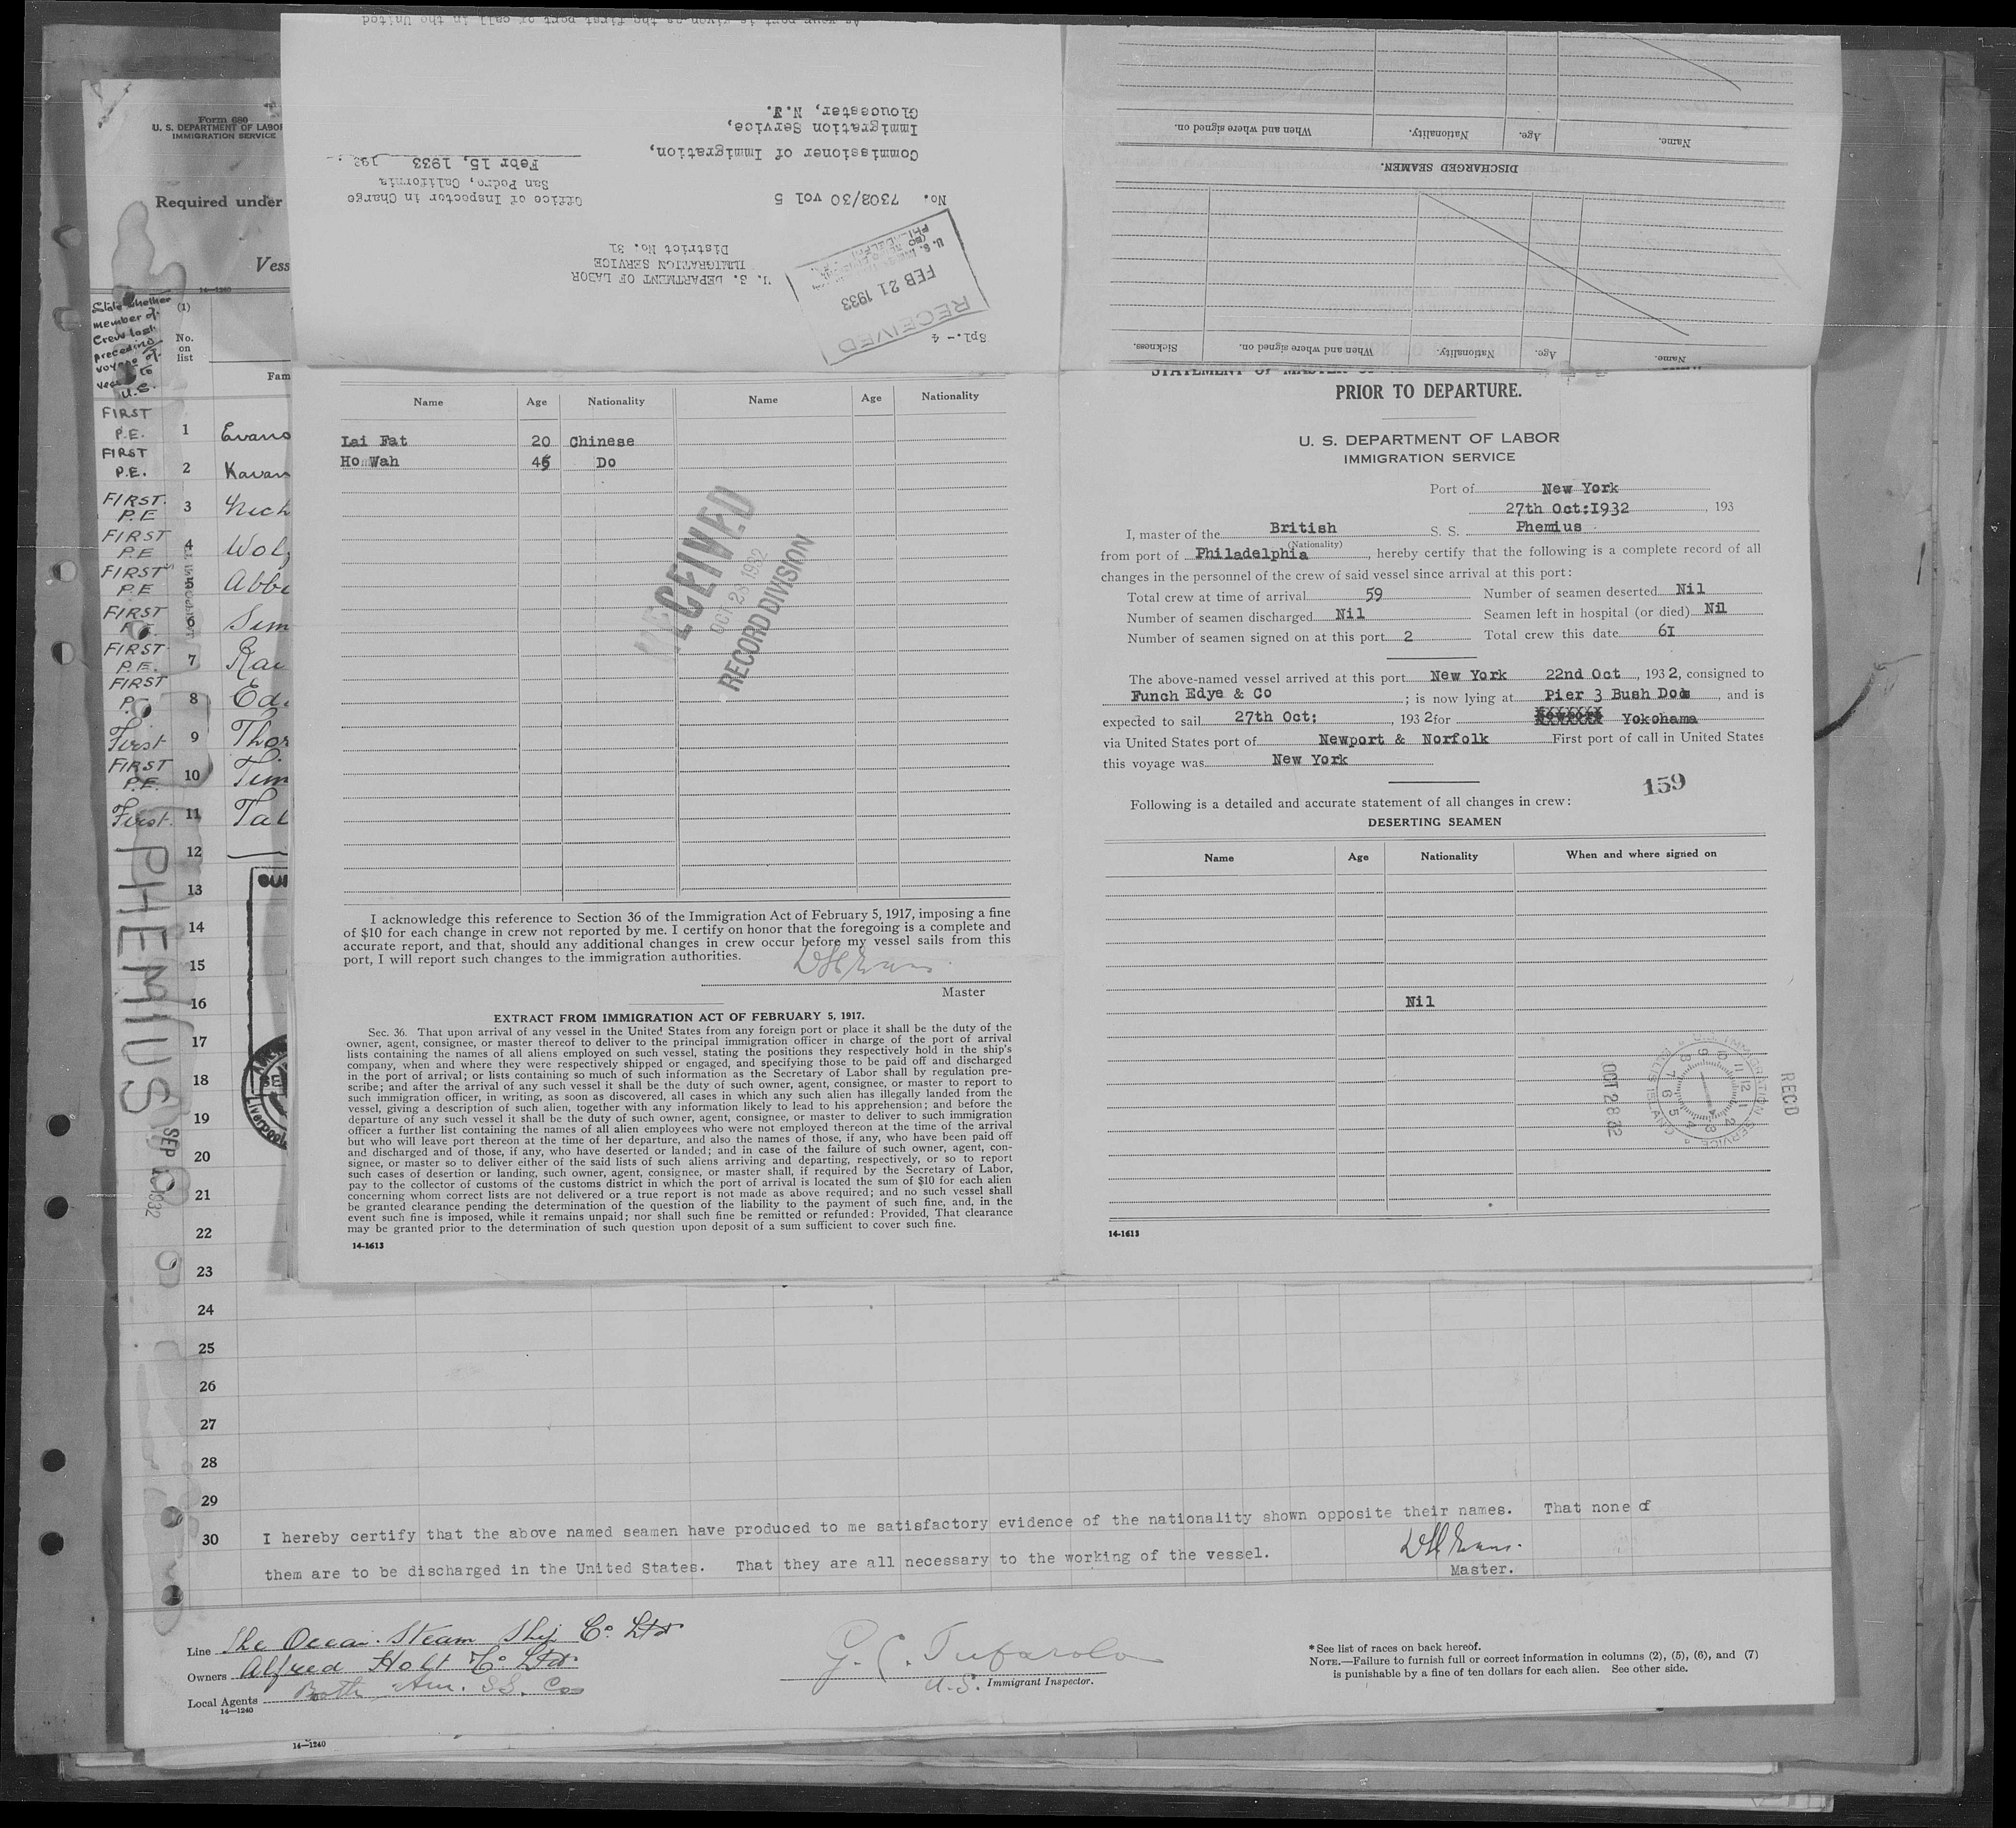 As your port is given as the first port of call in the United
Spl.- 4
RECEIVED
FEB 21 1933
U. S. DEPARTMENT OF LABOR
IMMIGRATION SERVICE
District No. 31
No. 7302/30 vol 5
Office of Inspector in Charge
San Pedro, California
Febr 15, 1933 193 .
Commissioner of Immigration,
Immigration Service,
Gloucester, N.J.
Name. Age. Nationality. When and where signed on. Sickness.
DISCHARGED SEAMEN.
Name. Age. Nationality. When and where signed on.
Form 680
U. S. DEPARTMENT OF LABOR
IMMIGRATION SERVICE
Required under
Vess
14—1240
State whether
member of
Crew last
preceding
voyage of
vessel to
U.S.
(1)
No.
on
list
Fam
FIRST
P.E. 1 Evans
FIRST
P.E. 2 Kavan
FIRST.
P.E 3 Nich
FIRST
P.E 4 Wol
FIRST
P.E 5 Abbe
FIRST
P.E. 6 Sim
FIRST
P.E. 7 Rae
FIRST
8 Ed
First 9 Thor
FIRST
P.E. 10 Tim
First. 11 Tal
12
13
14
15
16
17
18
19
20
21
22
23
24
25
26
27
28
29
30
PHEMIUS
SEP 1932
Liverpool
Name Age Nationality Name Age Nationality
Lai Fat 20 Chinese
Ho Wah 45 Do
RECEIVED
OCT 28 1932
RECORD DIVISION
I acknowledge this reference to Section 36 of the Immigration Act of February 5, 1917, imposing a fine
of $10 for each change in crew not reported by me. I certify on honor that the foregoing is a complete and
accurate report, and that, should any additional changes in crew occur before my vessel sails from this
port, I will report such changes to the immigration authorities.
D H Evans
Master
EXTRACT FROM IMMIGRATION ACT OF FEBRUARY 5, 1917.
Sec. 36. That upon arrival of any vessel in the United States from any foreign port or place it shall be the duty of the
owner, agent, consignee, or master thereof to deliver to the principal immigration officer in charge of the port of arrival
lists containing the names of all aliens employed on such vessel, stating the positions they respectively hold in the ship's
company, when and where they were respectively shipped or engaged, and specifying those to be paid off and discharged
in the port of arrival; or lists containing so much of such information as the Secretary of Labor shall by regulation pre-
scribe; and after the arrival of any such vessel it shall be the duty of such owner, agent, consignee, or master to report to
such immigration officer, in writing, as soon as discovered, all cases in which any such alien has illegally landed from the
vessel, giving a description of such alien, together with any information likely to lead to his apprehension; and before the
departure of any such vessel it shall be the duty of such owner, agent, consignee, or master to deliver to such immigration
officer a further list containing the names of all alien employees who were not employed thereon at the time of the arrival
but who will leave port thereon at the time of her departure, and also the names of those, if any, who have been paid off
and discharged and of those, if any, who have deserted or landed; and in case of the failure of such owner, agent, con-
signee, or master so to deliver either of the said lists of such aliens arriving and departing, respectively, or so to report
such cases of desertion or landing, such owner, agent, consignee, or master shall, if required by the Secretary of Labor,
pay to the collector of customs of the customs district in which the port of arrival is located the sum of $10 for each alien
concerning whom correct lists are not delivered or a true report is not made as above required; and no such vessel shall
be granted clearance pending the determination of the question of the liability to the payment of such fine, and, in the
event such fine is imposed, while it remains unpaid; nor shall such fine be remitted or refunded: Provided, That clearance
may be granted prior to the determination of such question upon deposit of a sum sufficient to cover such fine.
14-1613
PRIOR TO DEPARTURE.
U. S. DEPARTMENT OF LABOR
IMMIGRATION SERVICE
Port of New York
27th Oct:1932 , 193
I, master of the British S. S. Phemius
(Nationality)
from port of Philadelphia , hereby certify that the following is a complete record of all
changes in the personnel of the crew of said vessel since arrival at this port:
Total crew at time of arrival 59 Number of seamen deserted Nil
Number of seamen discharged Nil Seamen left in hospital (or died) Nil
Number of seamen signed on at this port 2 Total crew this date 61
The above-named vessel arrived at this port New York 22nd Oct , 193 2, consigned to
Funch Edye & Co ; is now lying at Pier 3 Bush Dock , and is
expected to sail 27th Oct: , 193 2 for Yokohama
via United States port of Newport & Norfolk First port of call in United States
this voyage was New York
159
Following is a detailed and accurate statement of all changes in crew:
DESERTING SEAMEN
Name Age Nationality When and where signed on
Nil
OCT 28 32
RECD
14-1613
I hereby certify that the above named seamen have produced to me satisfactory evidence of the nationality shown opposite their names. That none of
them are to be discharged in the United States. That they are all necessary to the working of the vessel.
D H Evans.
Master.
Line The Ocean Steam Ship Co Ltd
Owners Alfred Holt & Co Ltd
Local Agents Booth Am. S.S. Co
14—1240
G. C. Tufarolo
U.S. Immigrant Inspector.
* See list of races on back hereof.
NOTE.—Failure to furnish full or correct information in columns (2), (5), (6), and (7)
is punishable by a fine of ten dollars for each alien. See other side.
14—1240